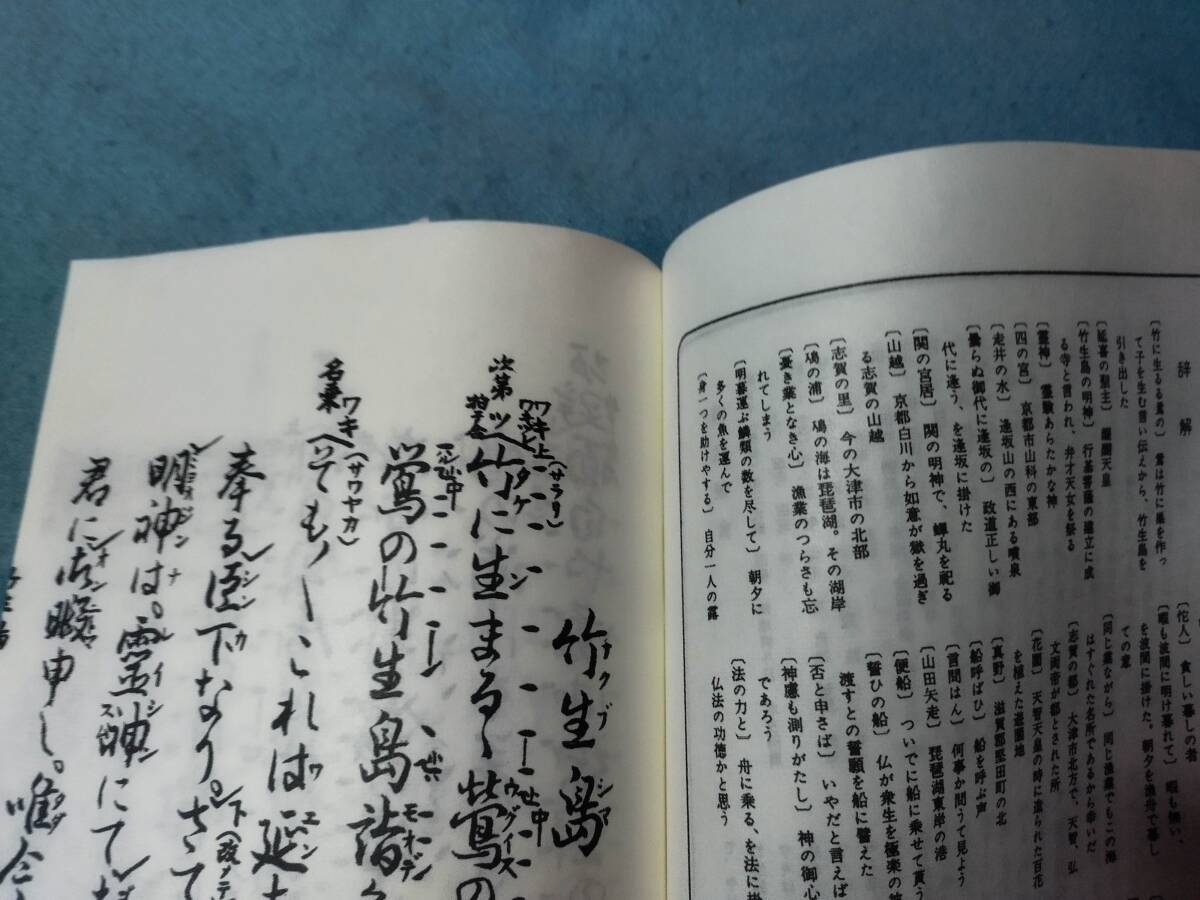 辞解
〔竹に生るる鶯の〕 鶯は竹に巣を作っ
て子を生む言い伝えから、竹生島を
引き出した
〔延喜の聖主〕 醍醐天皇
〔竹生島の明神〕 行基菩薩の建立に成
る寺と言われ、弁才天女を祭る
〔霊神〕 霊験あらたかな神
〔四の宮〕 京都市山科の東部
〔走井の水〕 逢坂山の西にある噴泉
〔曇らぬ御代に逢坂の〕 政道正しい御
代に逢う、を逢坂に掛けた
〔関の宮居〕 関の明神で、蝉丸を祀る
〔山越〕 京都白川から如意が嶽を過ぎ
る志賀の山越
〔志賀の里〕 今の大津市の北部
〔鳰の浦〕 鳰の海は琵琶湖。その湖岸
〔憂き業となき心〕 漁業のつらさも忘
れてしまう
〔明暮運ぶ鱗類の数を尽して〕 朝夕に
多くの魚を運んで
〔身一つを助けやする〕 自分一人の露
〔佗人〕 貧しい暮しの者
〔暇も波間に明け暮れて〕 暇も無い、
を波間に掛けた。朝夕を漁舟で暮し
ての意
〔同じ業ながら〕 同じ漁業でもこの海
はすぐれた名所であるから幸いだ
〔志賀の都〕 大津市北方で、天智、弘
文両帝が都とされた所
〔花園〕 天智天皇の時に造られた百花
を植えた遊園地
〔真野〕 滋賀郡堅田町の北
〔船呼ばひ〕 船を呼ぶ声
〔言問はん〕 何事か問うて見よう
〔山田矢走〕 琵琶湖東岸の浩
〔便船〕 ついでに船に乗せて貰う
〔誓ひの船〕 仏が衆生を極楽の彼
渡すとの誓願を船に譬えた
〔否と申さば〕 いやだと言えば
〔神慮も測りがたし〕 神の御心
であろう
〔法の力と〕 舟に乗る、を法に掛
仏法の功徳かと思う
竹生島
チクブシマ
次第
竹に生まるゝ鶯の
タケ ウグイス
鶯の竹生島詣
モオデ
名乗 ワキ (サワヤカ)
そも／＼これは延
エン
奉る臣下なり。さて
シン
明神は。霊神にて
君に御暇申し。唯今